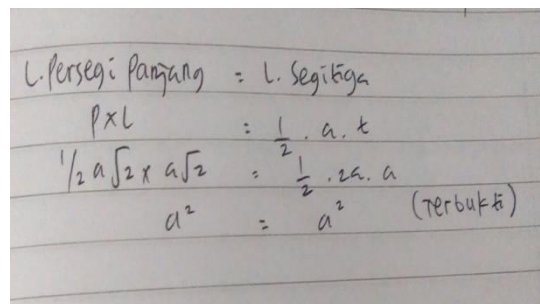 L. Persegi Panjang = L. Segitiga
P x L = 1/2 . a . t
1/2 a√2 x a√2 = 1/2 . 2a . a
a² = a² (Terbukti)